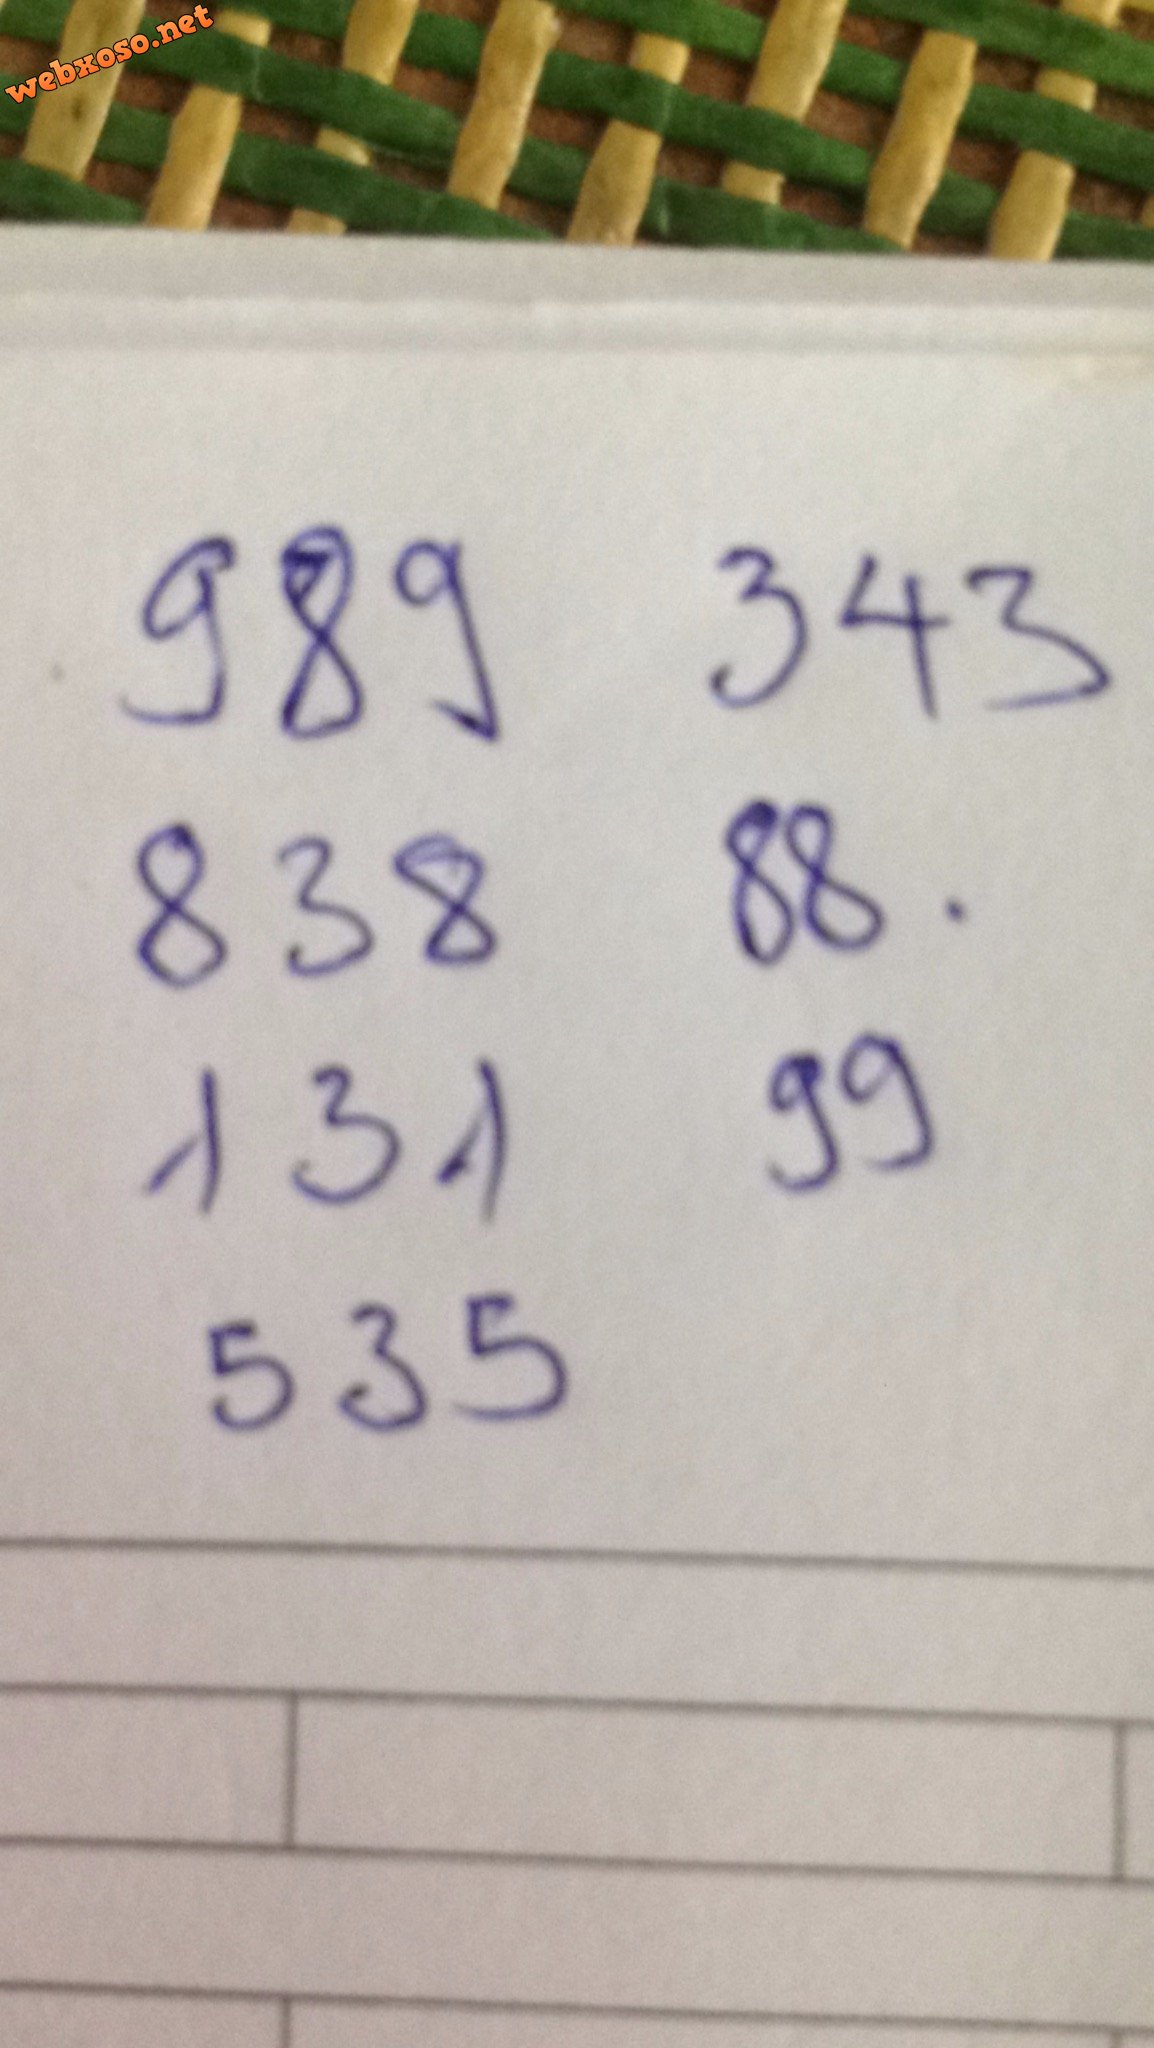 webxoso.net
989 343
838 88.
131 99
535